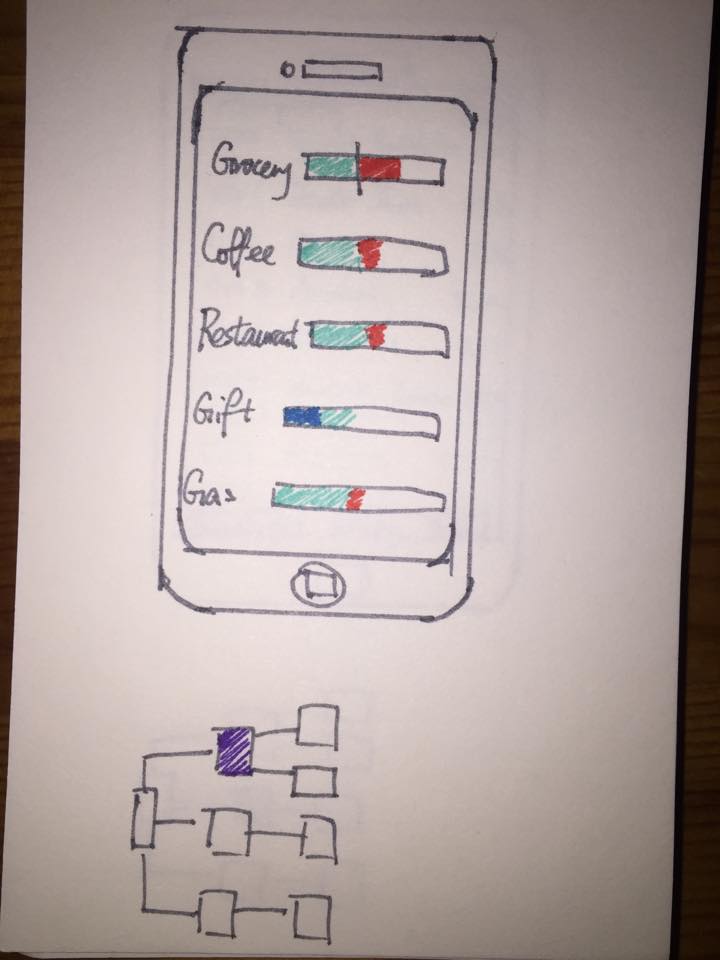 Grocery
Coffee
Restaurant
Gift
Gas